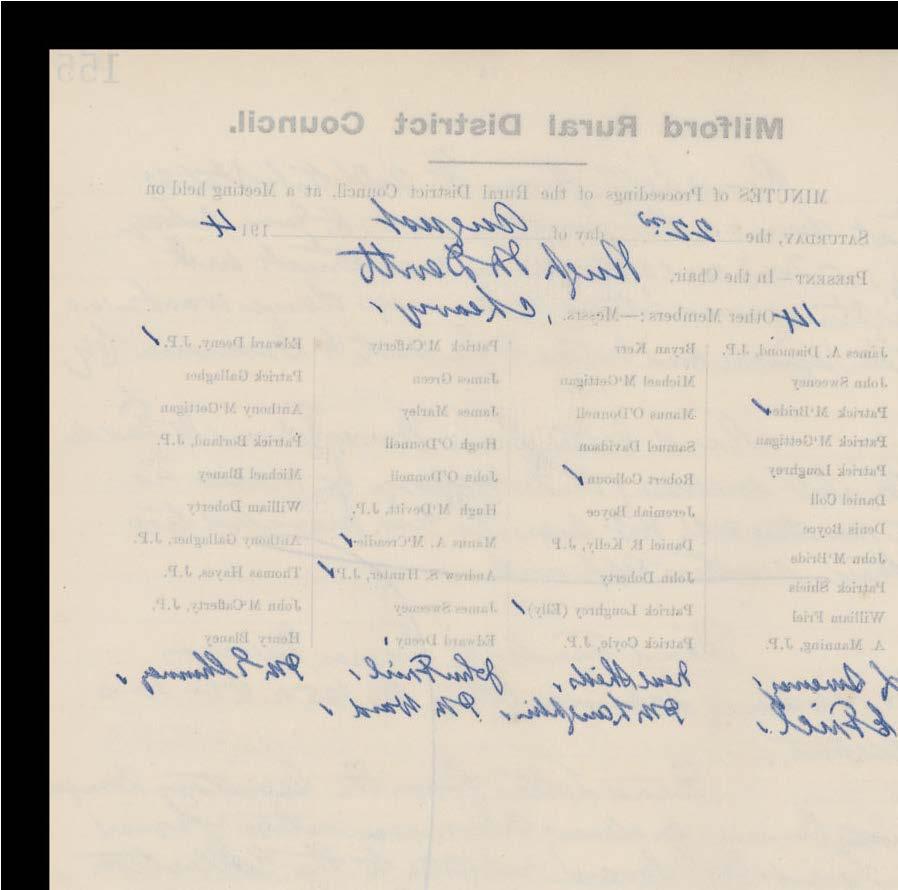 155
Milford Rural District Council.
MINUTES of Proceedings of the Rural District Council, at a Meeting held on
SATURDAY, the 22nd day of August 191 4
PRESENT—In the Chair, Hugh McDevitt
14 Other Members:—Messrs.
James A. Diamond, J.P.
John Sweeney
Patrick M'Bride ✓
Patrick M'Gettigan
Patrick Loughrey
Daniel Coll
Denis Boyce
John M'Bride
Patrick Shiels
William Friel
A. Manning, J.P.
Bryan Kerr
Michael M'Gettigan
Manus O'Donnell
Samuel Davidson
Robert Colhoun ✓
Jeremiah Boyce
Daniel B. Kelly, J.P.
John Doherty
Patrick Loughrey (Elly) ✓
Patrick Coyle, J.P.
Patrick M'Cafferty
James Green
James Marley
Hugh O'Donnell
John O'Donnell
Hugh M'Devitt, J.P.
Manus A. M'Creadie ✓
Andrew S. Hunter, J.P. ✓
James Sweeney
Edward Deeny
Edward Deeny, J.P. ✓
Patrick Gallagher
Anthony M'Gettigan
Patrick Borland, J.P.
Michael Blaney
William Doherty
Anthony Gallagher, J.P.
Thomas Hayes, J.P.
John M'Cafferty, J.P.
Henry Blaney
Sweeney, Neal Shiels, John Friel,
Friel, McLaughlin, McWard,